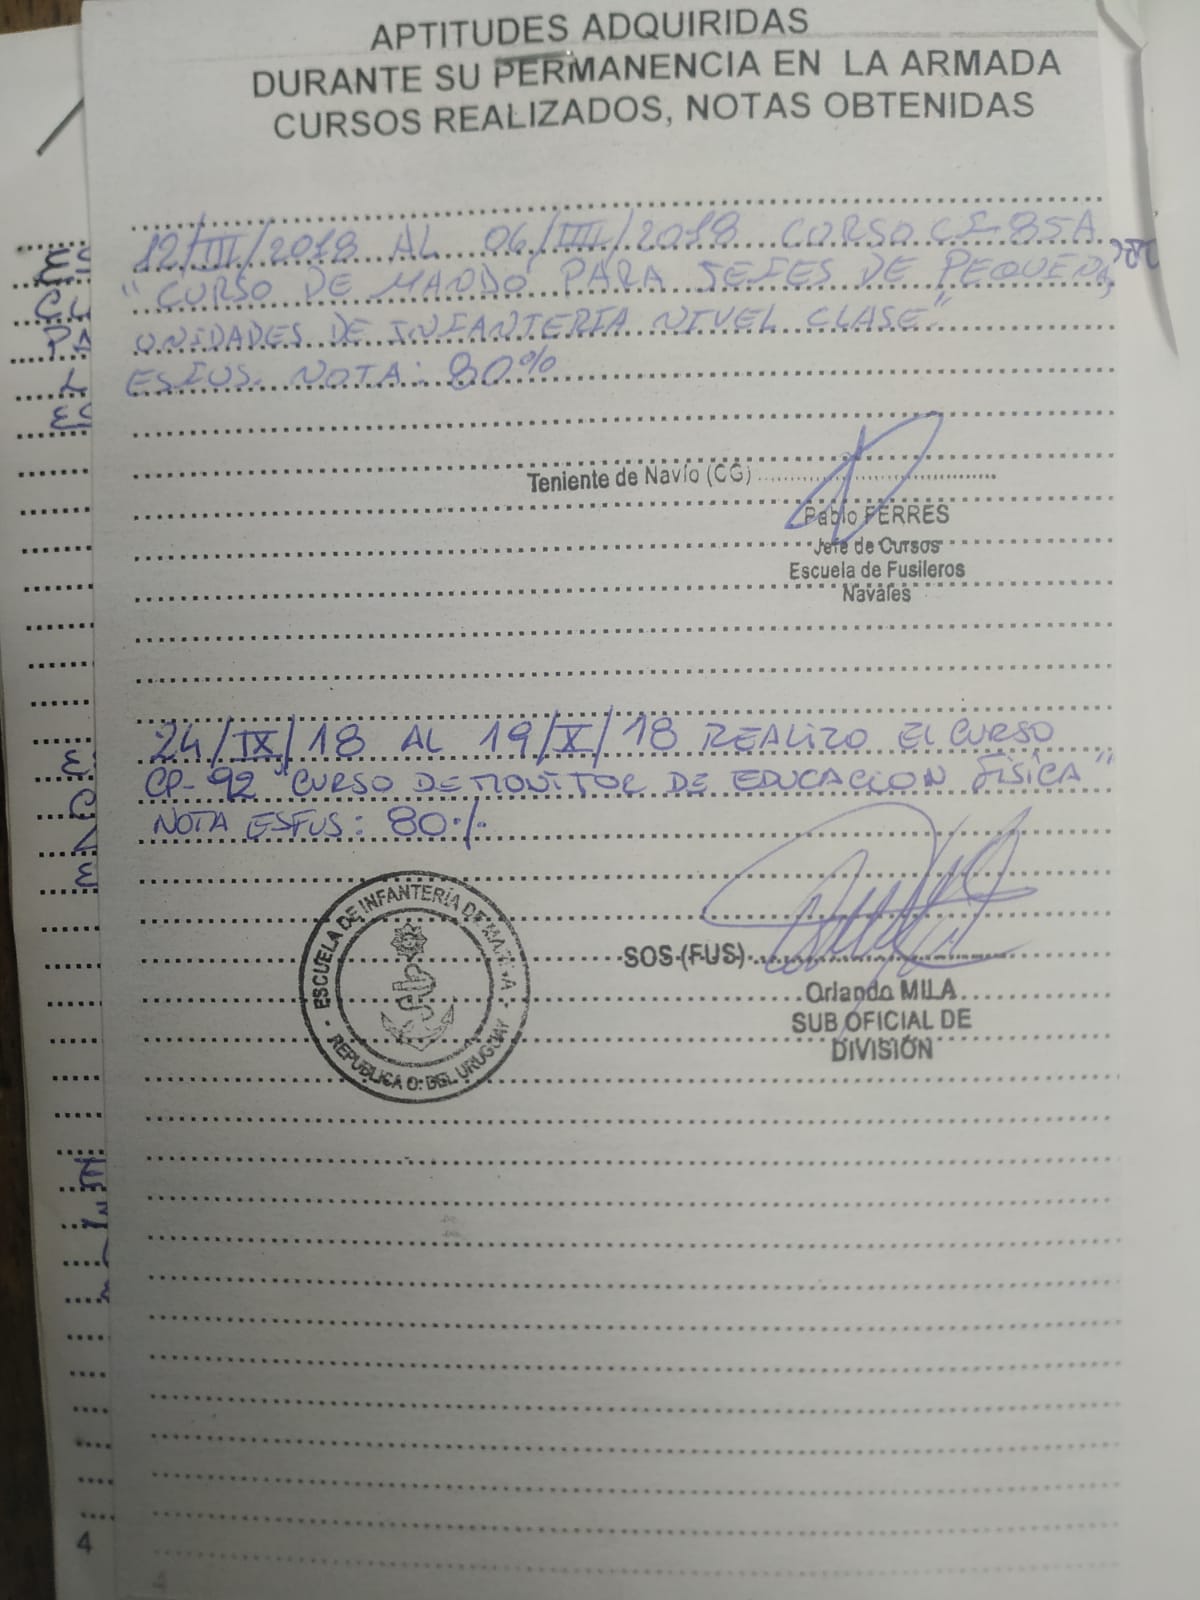 APTITUDES ADQUIRIDAS
DURANTE SU PERMANENCIA EN LA ARMADA
CURSOS REALIZADOS, NOTAS OBTENIDAS
12/III/2018 AL 06/IIII/2018 CURSO 85A
"CURSO DE MANDO PARA JEFES DE PEQUEÑAS
UNIDADES DE INFANTERIA NIVEL CLASE"
ESFUS. NOTA: 80%
Teniente de Navío (CG)
Pablo FERRES
Jefe de Cursos
Escuela de Fusileros
Navales
24/IX/18 AL 19/X/18 REALIZO EL CURSO
CP-92 "CURSO DE MONITOR DE EDUCACION FISICA"
NOTA ESFUS: 80%
ESCUELA DE INFANTERÍA DE MARINA
REPUBLICA O. DEL URUGUAY
SOS (FUS)
Orlando MILA
SUB OFICIAL DE
DIVISIÓN
4